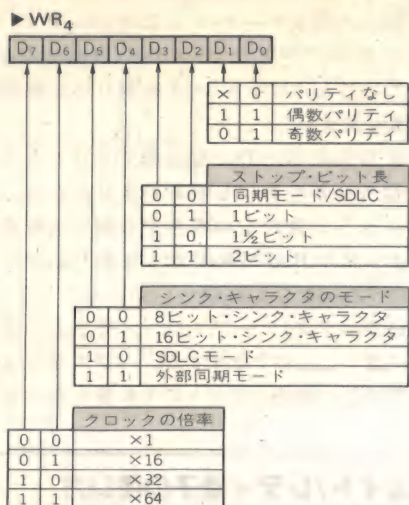 ▶ WR₄
D₇ D₆ D₅ D₄ D₃ D₂ D₁ D₀
× 0 パリティなし
1 1 偶数パリティ
0 1 奇数パリティ
ストップ・ビット長
0 0 同期モード/SDLC
0 1 1ビット
1 0 1½ビット
1 1 2ビット
シンク・キャラクタのモード
0 0 8ビット・シンク・キャラクタ
0 1 16ビット・シンク・キャラクタ
1 0 SDLCモード
1 1 外部同期モード
クロックの倍率
0 0 ×1
0 1 ×16
1 0 ×32
1 1 ×64